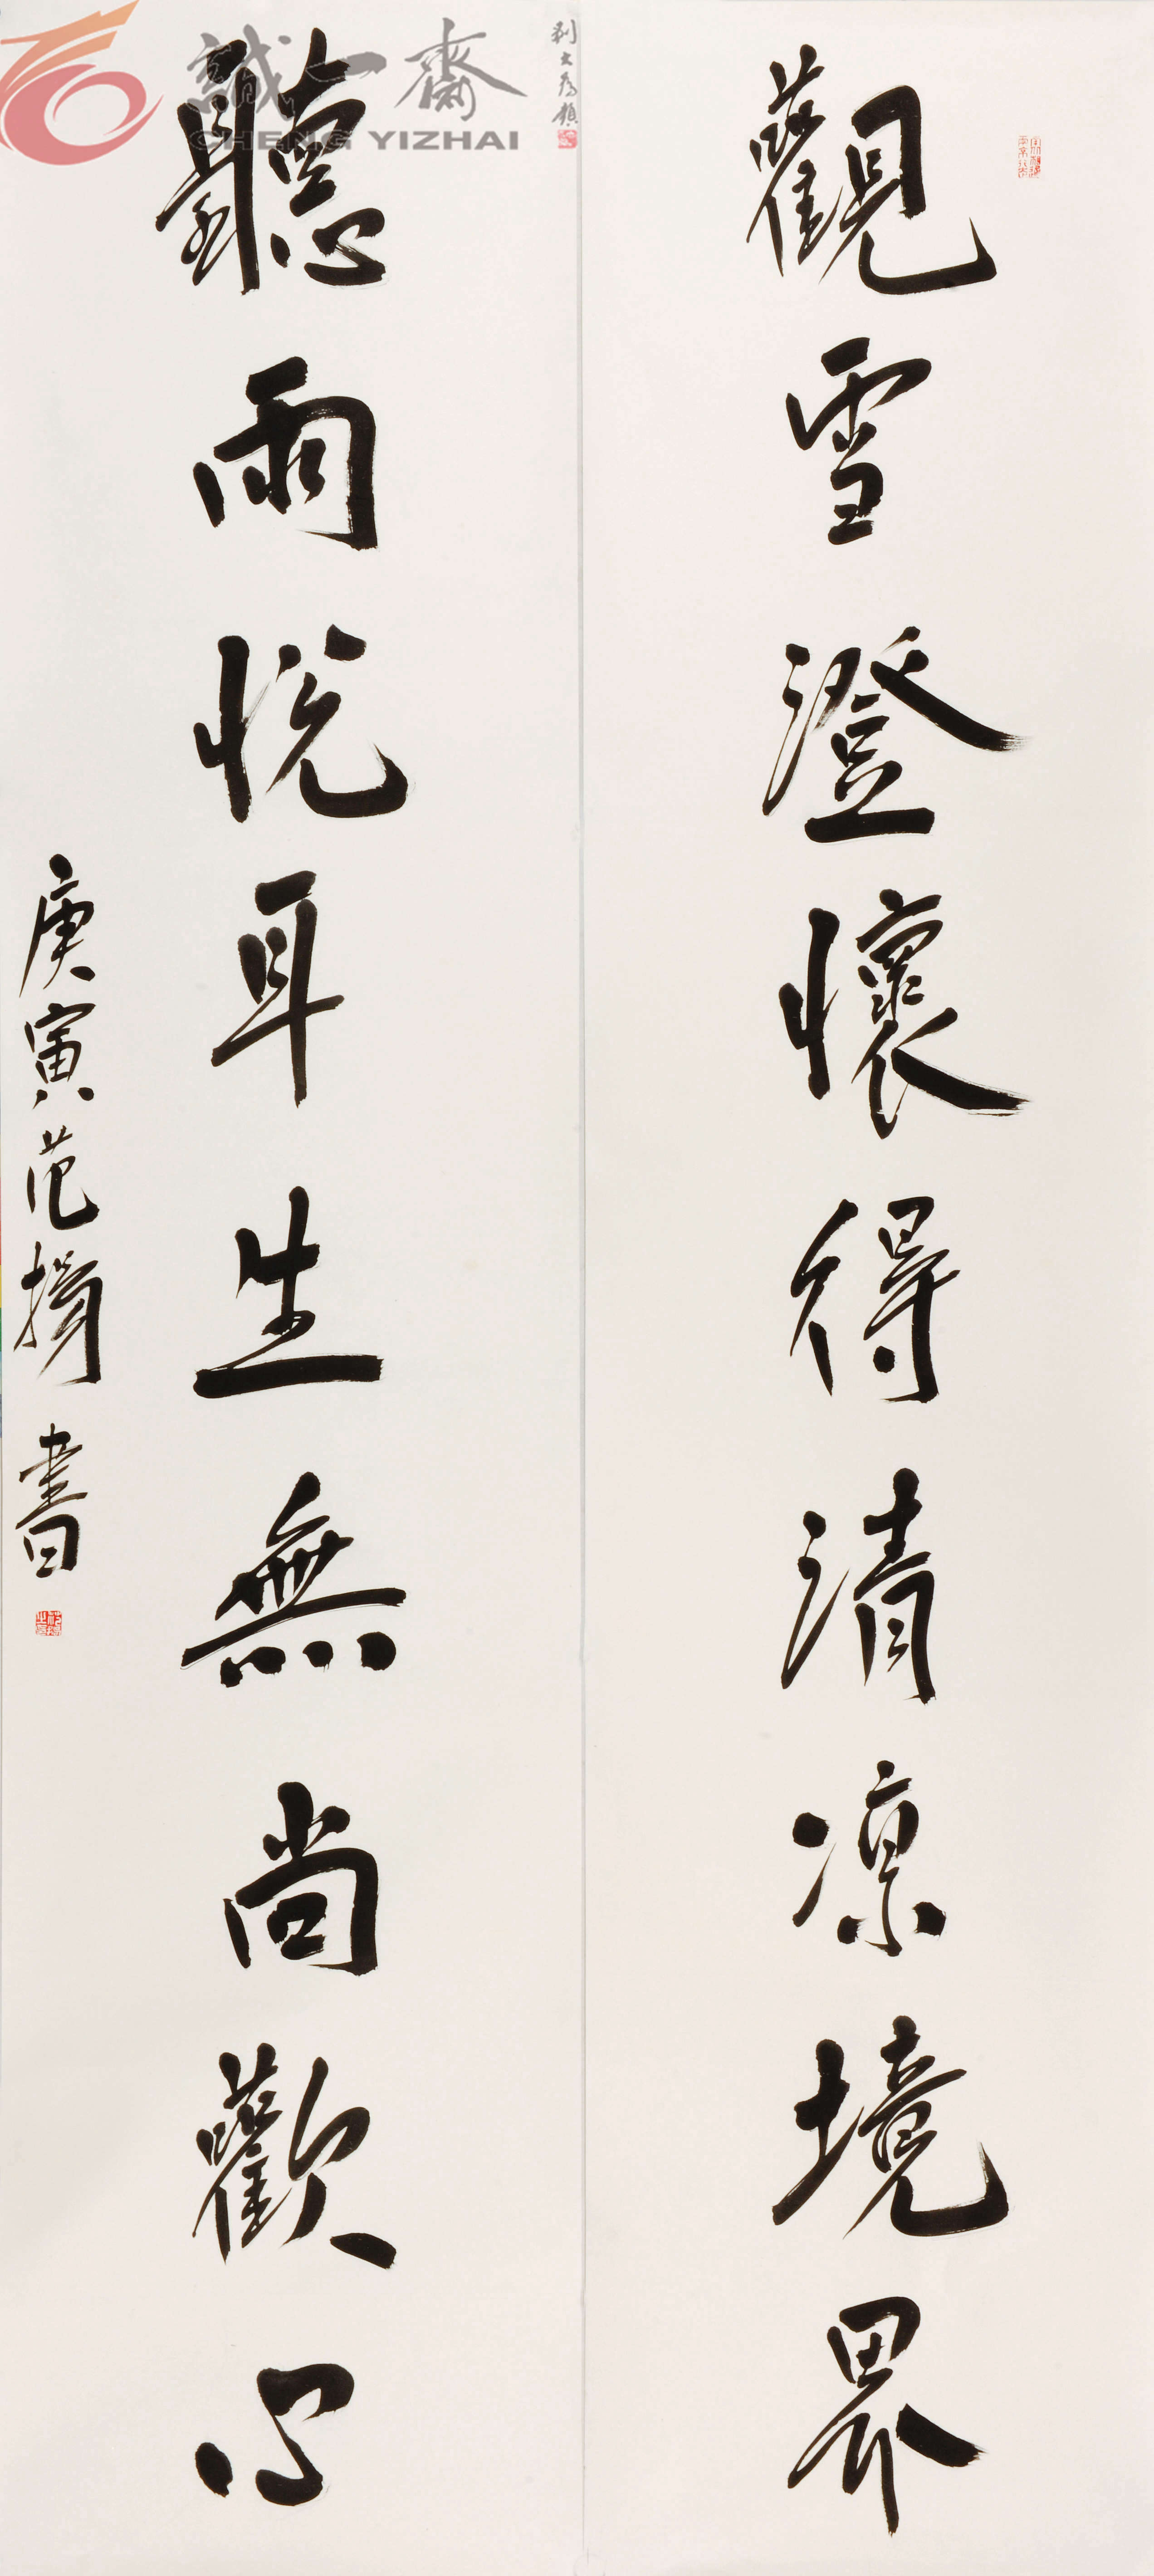 觀雪澄懷得清凉境界
聽雨悦耳生無尚歡心
庚寅范揚書
誠一齋
CHENG YIZHAI